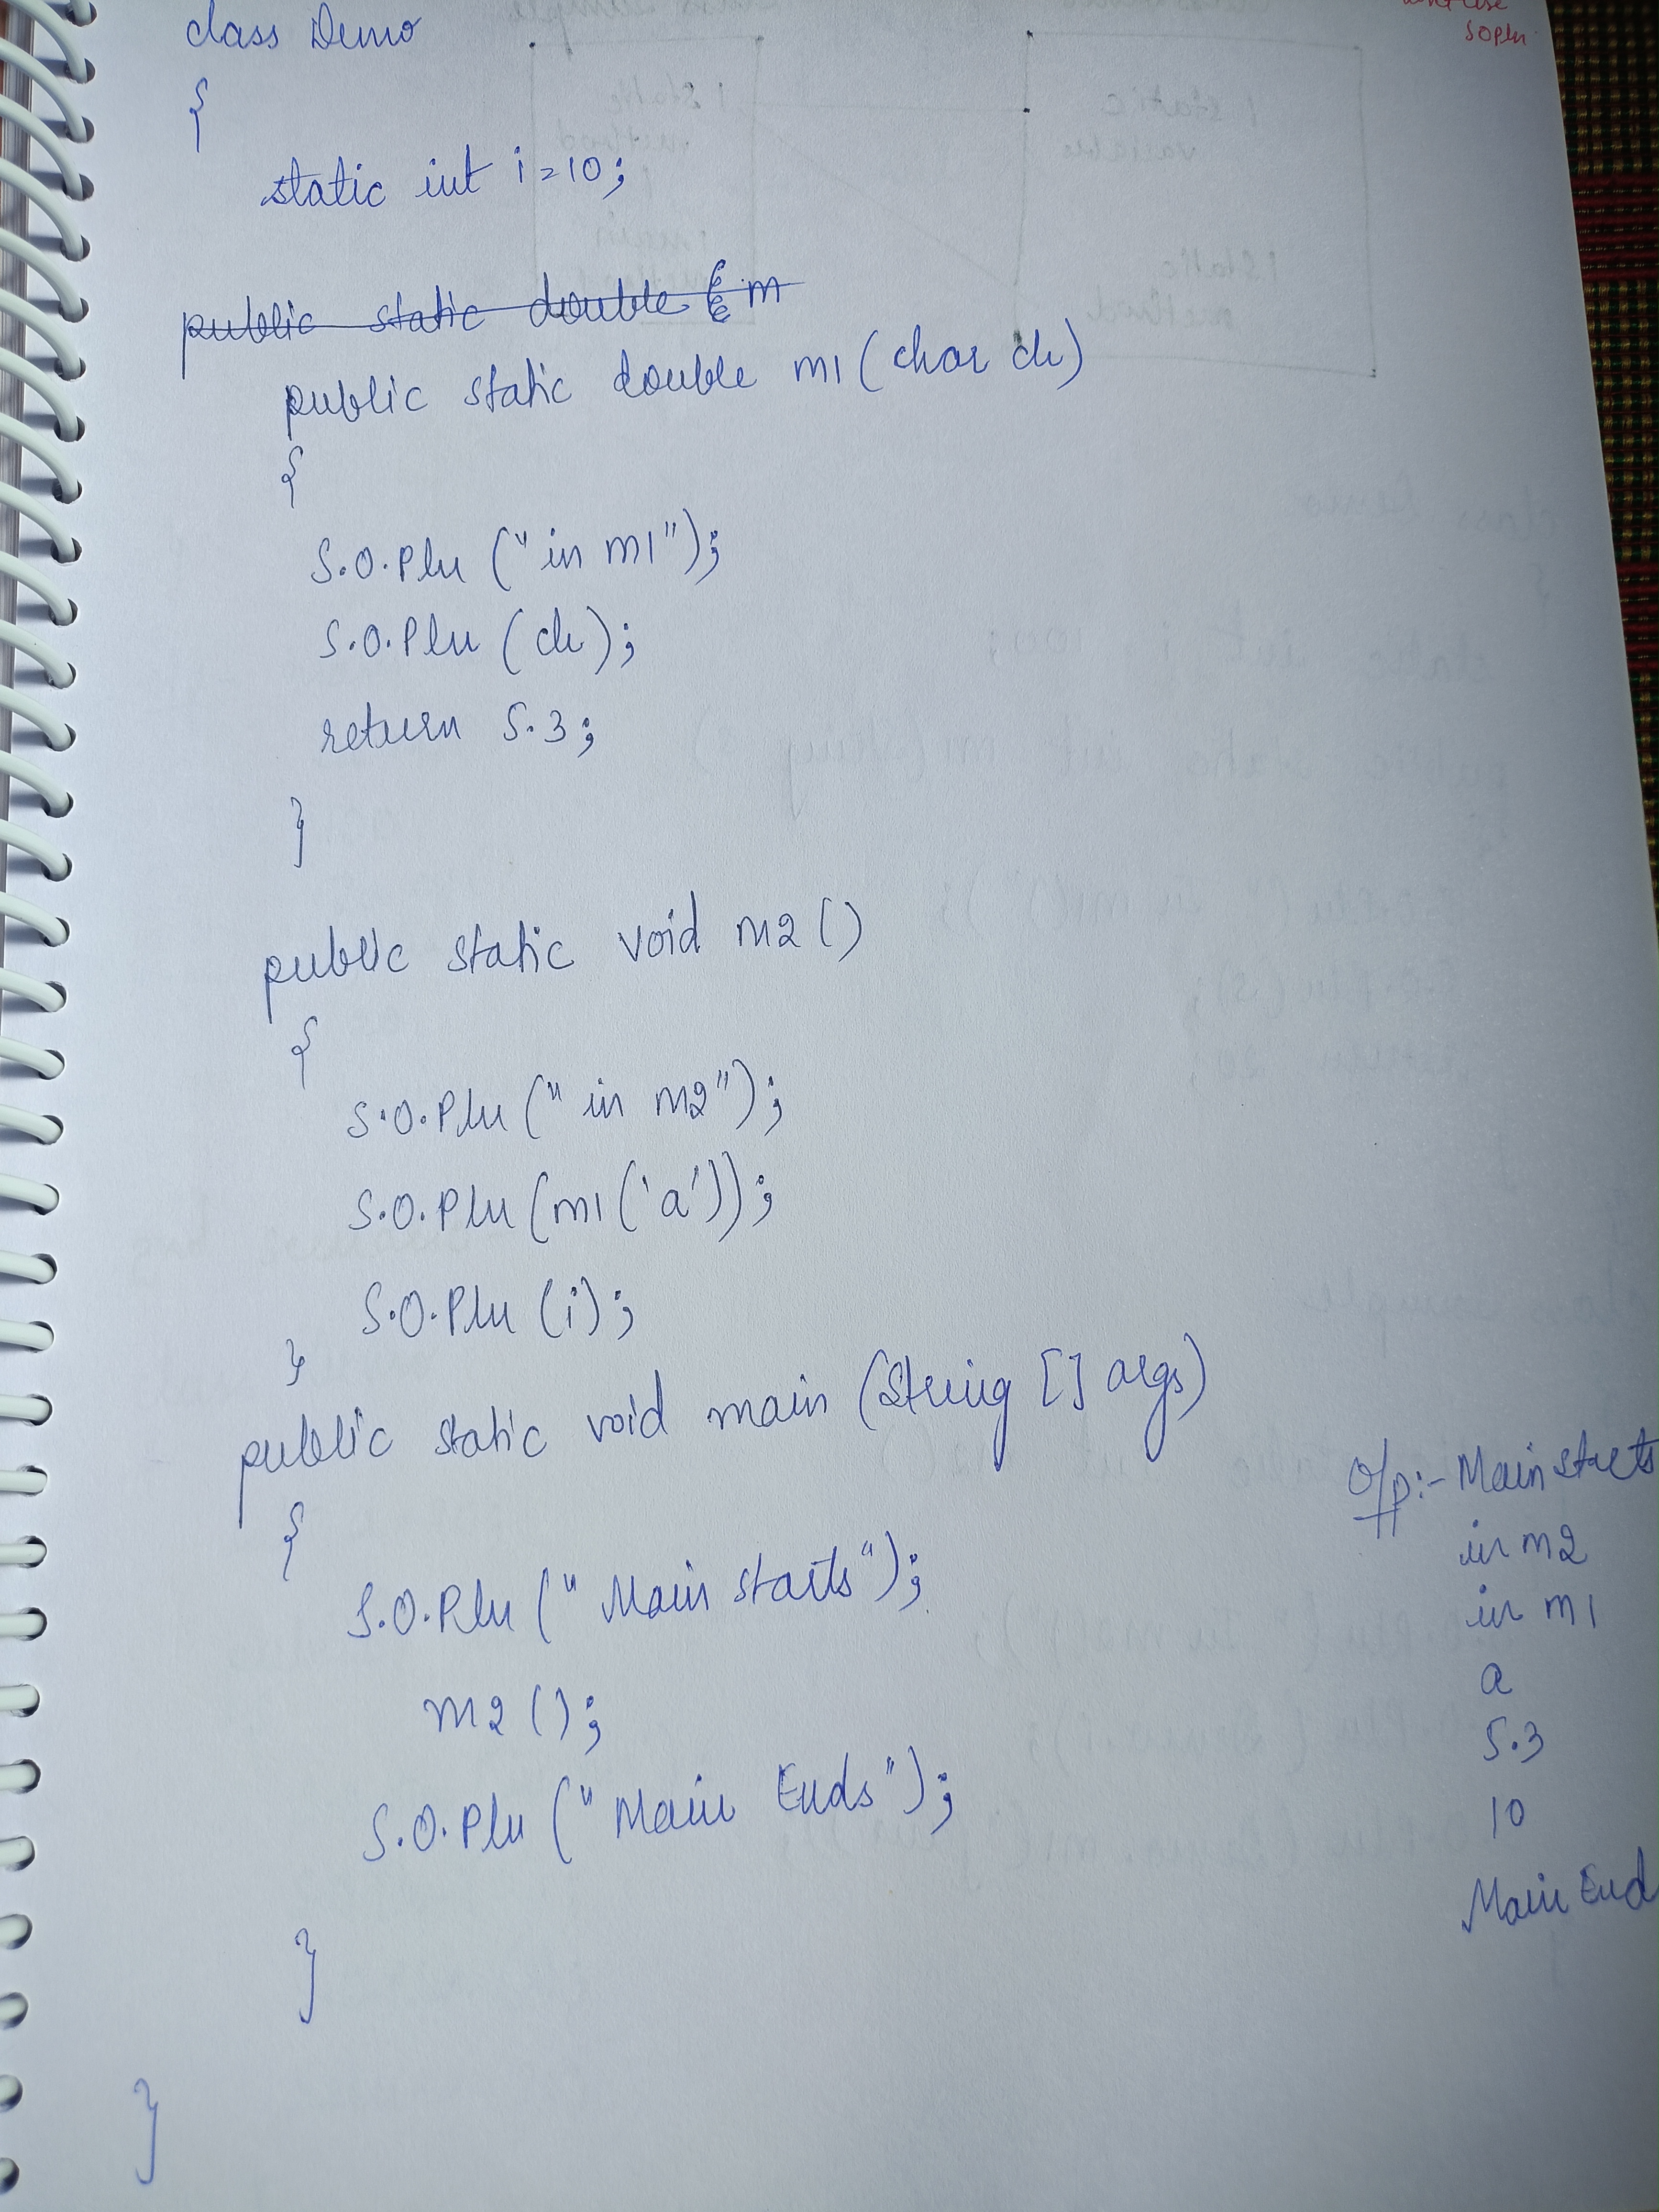 class Demo
{
static int i=10;
public static double m
public static double m1 (char ch)
{
S.O.Pln ("in m1");
S.O.Pln (ch);
return 5.3;
}
public static void m2 ()
{
S.O.Pln ("in m2");
S.O.Pln (m1 ('a'));
S.O.Pln (i);
}
public static void main (String [] args)
{
S.O.Pln ("Main starts");
m2 ();
S.O.Pln ("Main Ends");
}
}
O/p:- Main starts
in m2
in m1
a
5.3
10
Main End
sopln